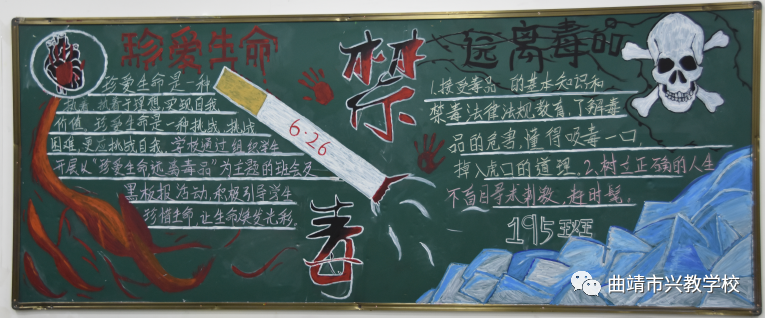 珍爱生命
珍爱生命是一种
热情,执着于理想,实现自我
价值,珍爱生命是一种挑战,挑战
困难,更应挑战自我,学校通过组织学生
开展以“珍爱生命远离毒品”为主题的班会及
黑板报活动,积极引导学生
珍惜生命,让生命焕发光彩.
6·26
禁
毒
远离毒品
1.接受毒品 的基本知识和
禁毒法律法规教育,了解毒
品的危害,懂得吸毒一口,
掉入虎口的道理.2.树立正确的人生
不盲目寻求刺激,赶时髦.
195班
曲靖市兴教学校